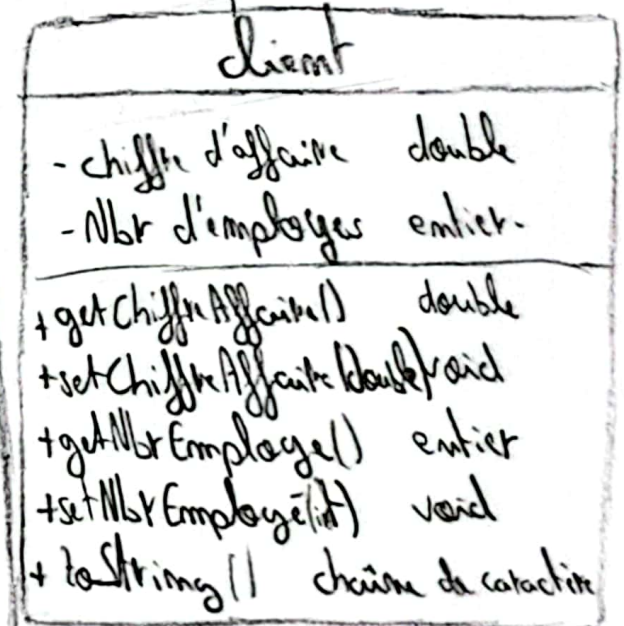 client
- chiffre d'affaire double
- Nbr d'employes entier.
+ getChiffreAffaire() double
+setChiffreAffaire(double) void
+getNbrEmploye() entier
+setNbrEmployé(int) void
+ toString() chaîne de caractère